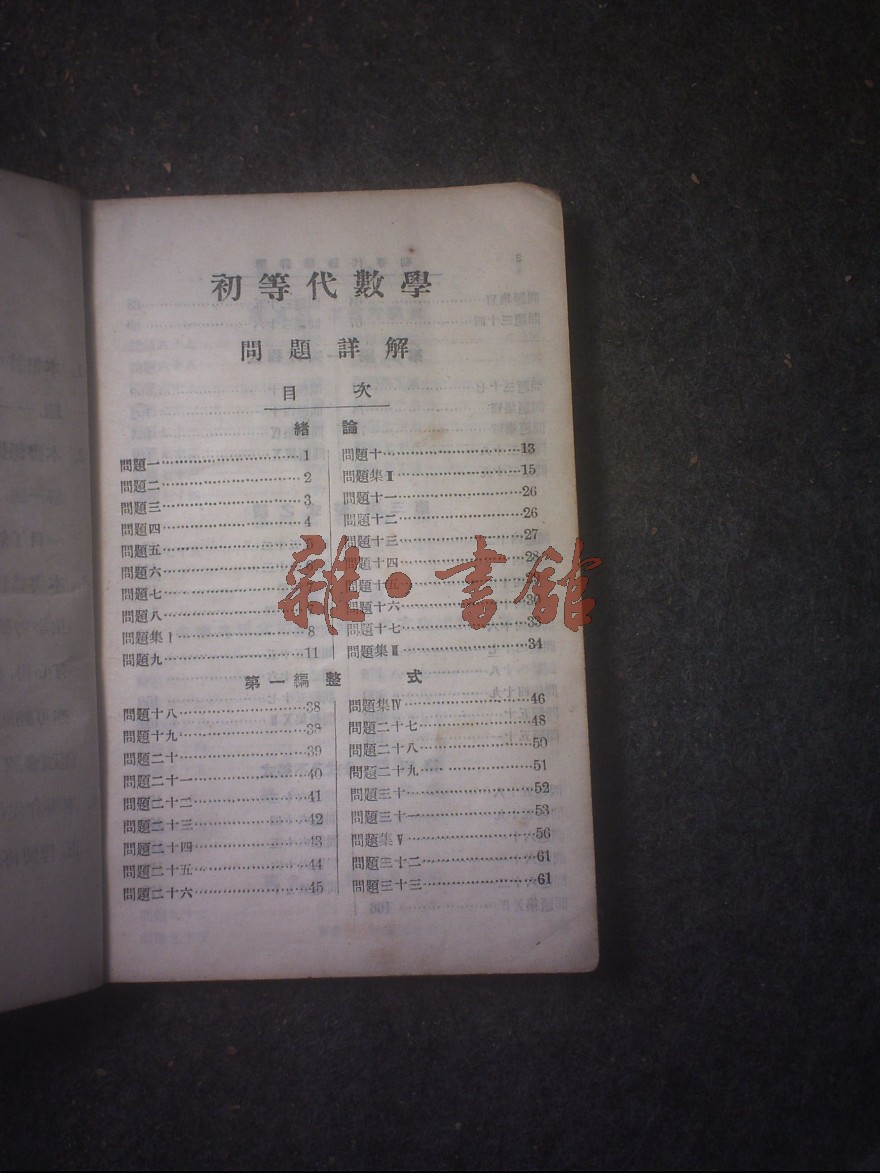 初等代數學
問題詳解
目次
緒論
問題一……1
問題二……2
問題三……3
問題四……4
問題五……5
問題六
問題七
問題八
問題集Ⅰ……8
問題九……11
問題十……13
問題集Ⅱ……15
問題十一……26
問題十二……26
問題十三……27
問題十四……28
問題十五
問題十六
問題十七……33
問題集Ⅲ……34
第一編 整式
問題十八……38
問題十九……38
問題二十……39
問題二十一……40
問題二十二……41
問題二十三……42
問題二十四……43
問題二十五……44
問題二十六……45
問題集Ⅳ……46
問題二十七……48
問題二十八……50
問題二十九……51
問題三十……52
問題三十一……53
問題集Ⅴ……56
問題三十二……61
問題三十三……61
雜·書館